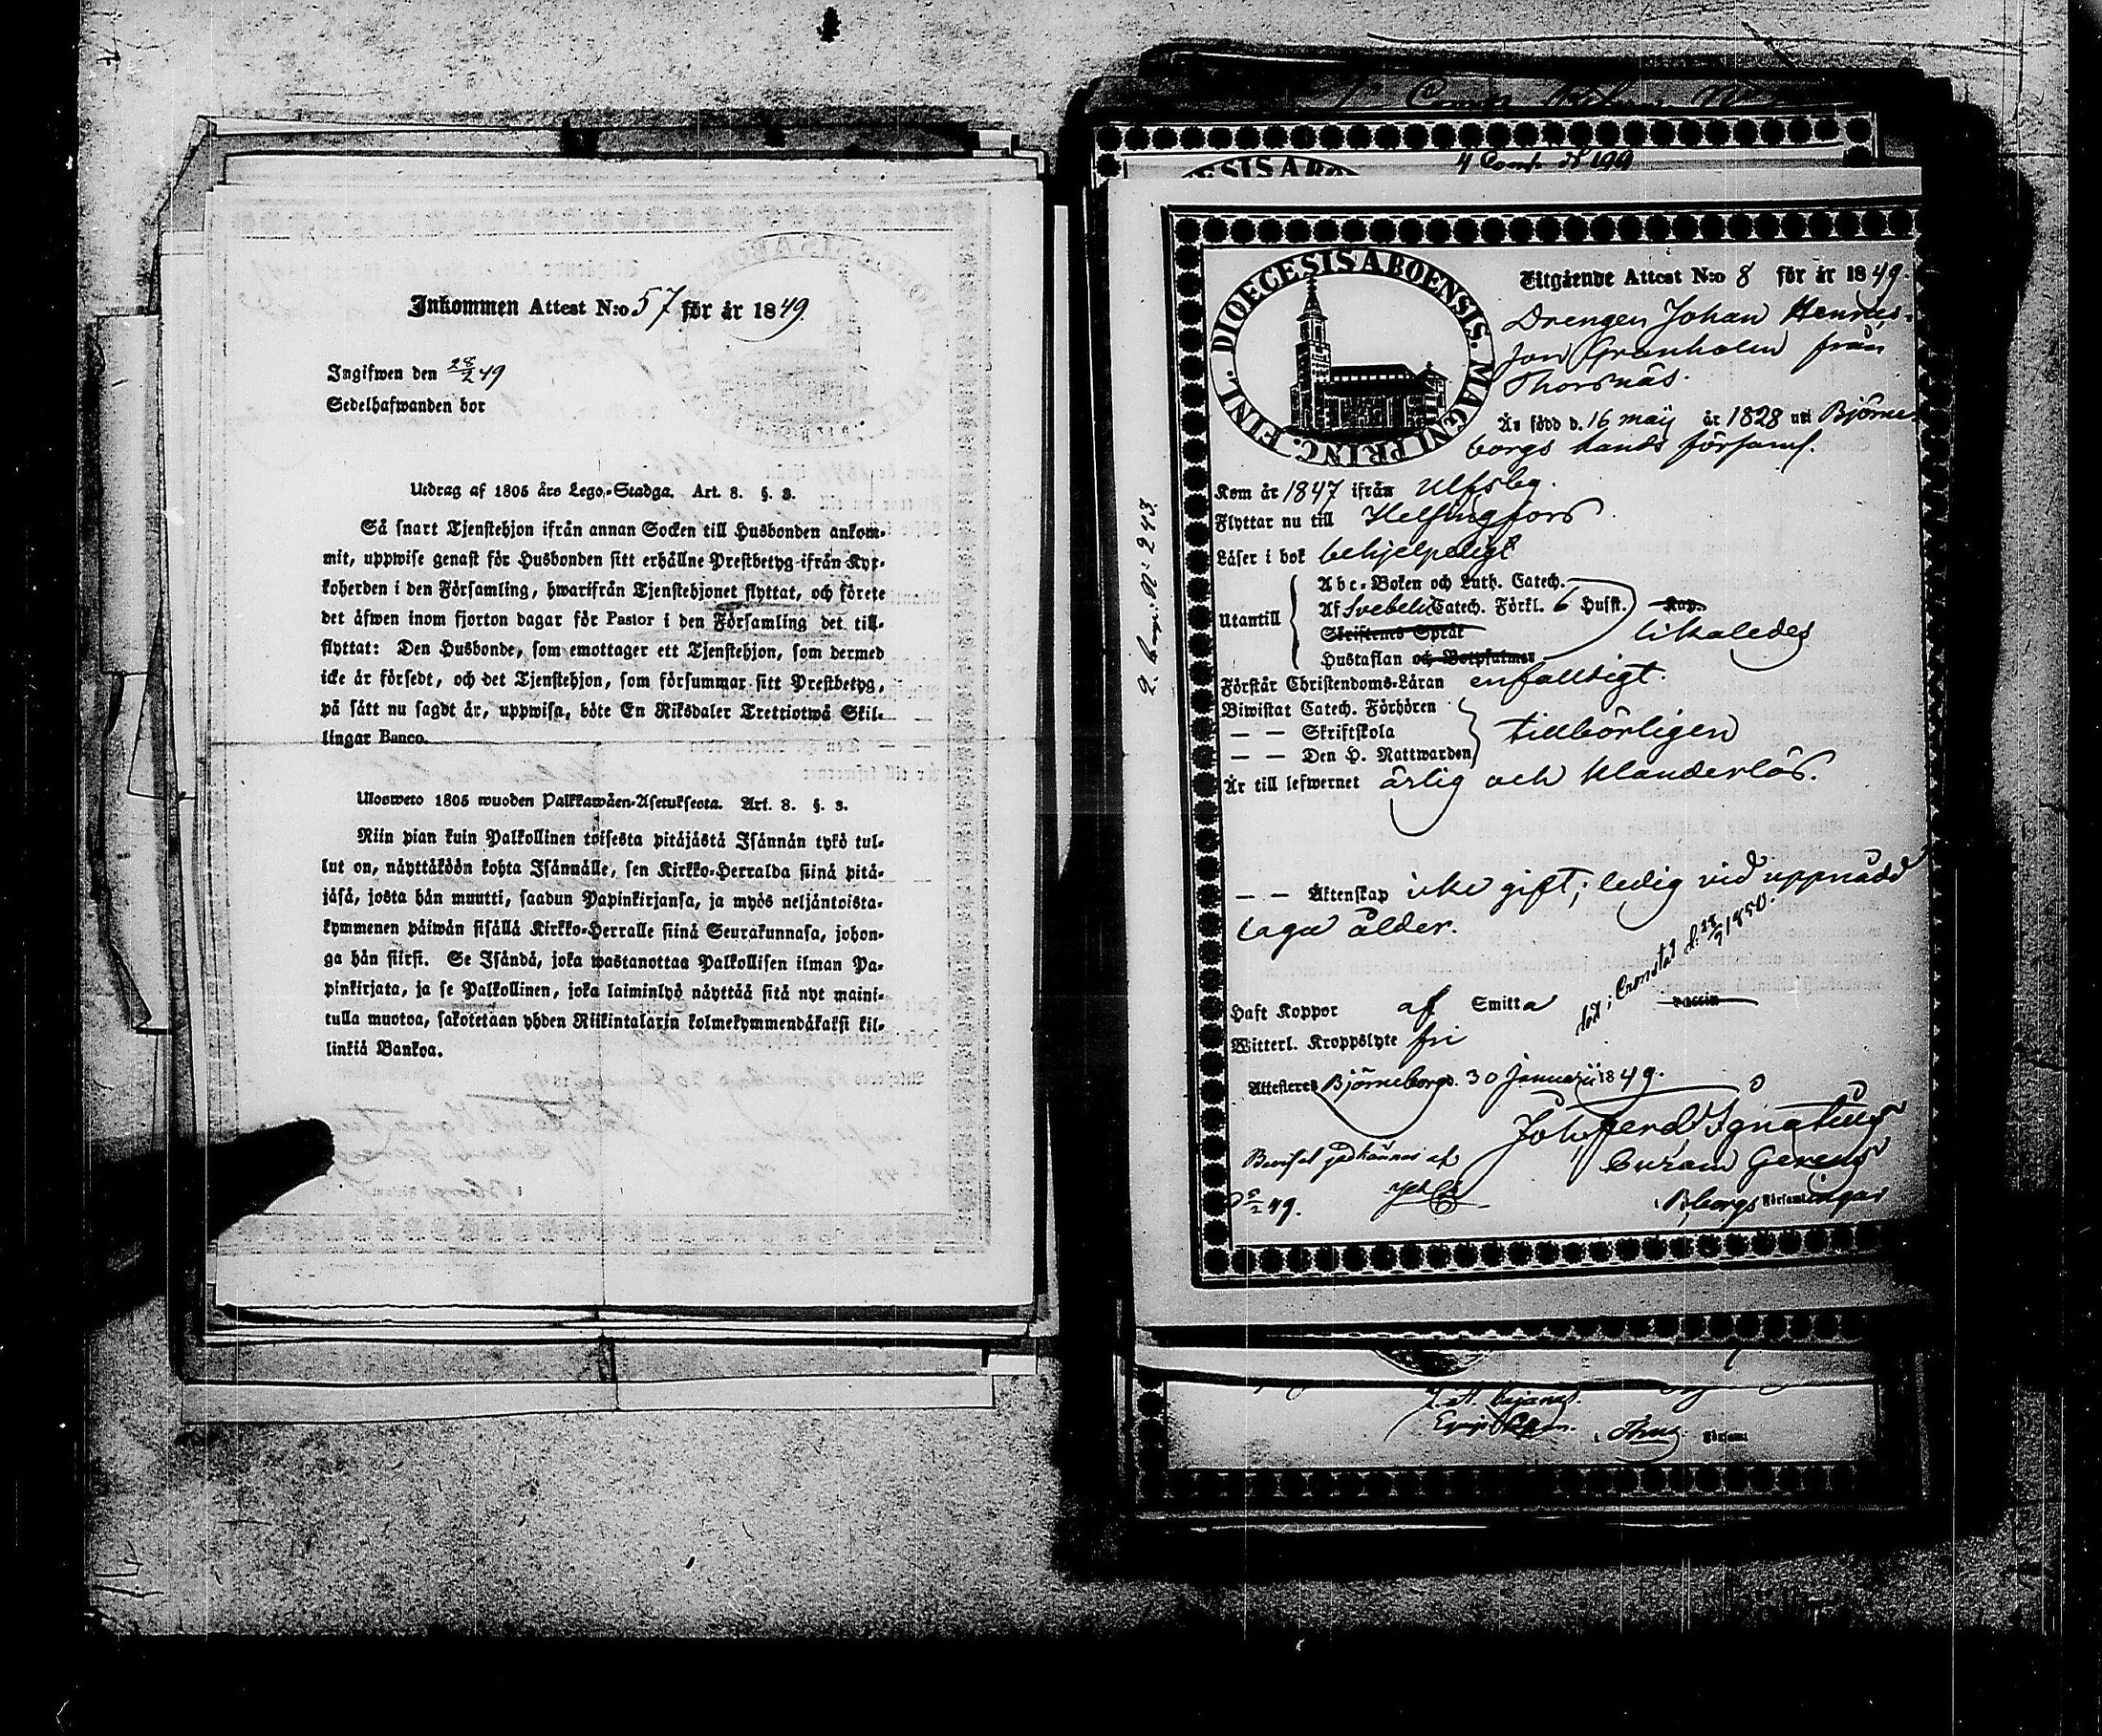 Inkommen Attest N:o 57 för år 1849.
Ingifwen den 28/2 49
Sedelhafwanden bor
Utdrag af 1805 års Lego-Stadga. Art. 8. §. 3.
Så snart Tjenstehjon ifrån annan Socken till Husbonden ankom-
mit, uppwise genast för Husbonden sitt erhållne Prestbetyg ifrån Kyr-
koherden i den Församling, hwarifrån Tjenstehjonet flyttat, och förete
det äfwen inom fjorton dagar för Pastor i den Församling det till-
flyttat: Den Husbonde, som emottager ett Tjenstehjon, som dermed
icke är försedt, och det Tjenstehjon, som försummar sitt Prestbetyg,
på sätt nu sagdt är, uppwisa, böte En Riksdaler Trettiotwå Skil-
lingar Banco.
Ulosweto 1805 wuoden Palkkawäen-Asetuksesta. Art. 8. §. 3.
Niin pian kuin Palkollinen toisesta pitäjästä Isännän tykö tul-
lut on, näyttäköön kohta Isännälle, sen Kirkko-Herralda siinä pitä-
jäsä, josta hän muutti, saadun Papinkirjansa, ja myös neljäntoista-
kymmenen päiwän sisällä Kirkko-Herralle siinä Seurakunnasa, johon-
ga hän siirsi. Se Isändä, joka wastanottaa Palkollisen ilman Pa-
pinkirjata, ja se Palkollinen, joka laiminlyö näyttää sitä nyt maini-
tulla muotoa, sakotetaan yhden Riikintalarin kolmekymmendäkaksi kil-
linkiä Bankoa.
4 Comp. N 199
DIOECESIS ABOENSIS. MAGNI PRINC. FINL.
Utgående Attest N:o 8 för år 1849.
Drengen Johan Henriks-
son Granholm från
Thorsnäs.
Är född d. 16 maij år 1828 uti Björne-
borgs Lands församl.
Kom år 1847 ifrån Ulfsby.
Flyttar nu till Helsingfors
Läser i bok behjelpeligt
Utantill
Abc-Boken och Luth. Catech.
Af Svebelii Catech. Förkl. 6 Husst. Kap.
Skriftens Språk likaledes
Hustaflan och Botpsalmer
Förstår Christendoms-Läran enfalldigt.
Biwistat Catech. Förhören
— — Skriftskola tillbörligen
— — Den H. Nattwarden
Är till lefwernet ärlig och klanderlös.
— — Äktenskap icke gift; ledig vid uppnådd
laga ålder.
död i Cronstad d. 28/9 1850.
Haft Koppor af Smitta Vaccin
Witterl. Kroppslyte fri
Attesteres Björneborg d. 30 Januarii 1849.
Joh. Ferd. Ignatius
Curam Gerens
i Bborgs Församlingar
Beviset godkännes af
D 5/2 49.
2. Comp: N: 243.